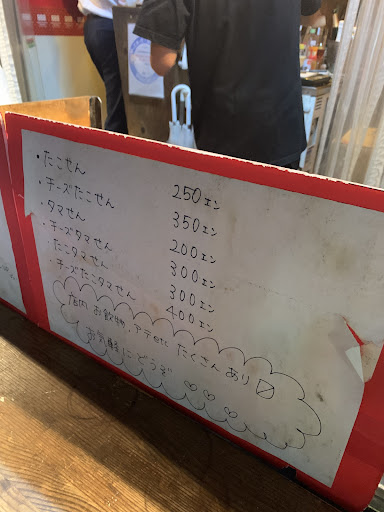 ・たこせん 250エン
・チーズたこせん 350エン
・タマせん 200エン
・チーズタマせん 300エン
・たこタマせん 300エン
・チーズたこタマせん 400エン
店内 お飲物、アテetc たくさんあり〼
お気軽にどうぞ ♡♡♡